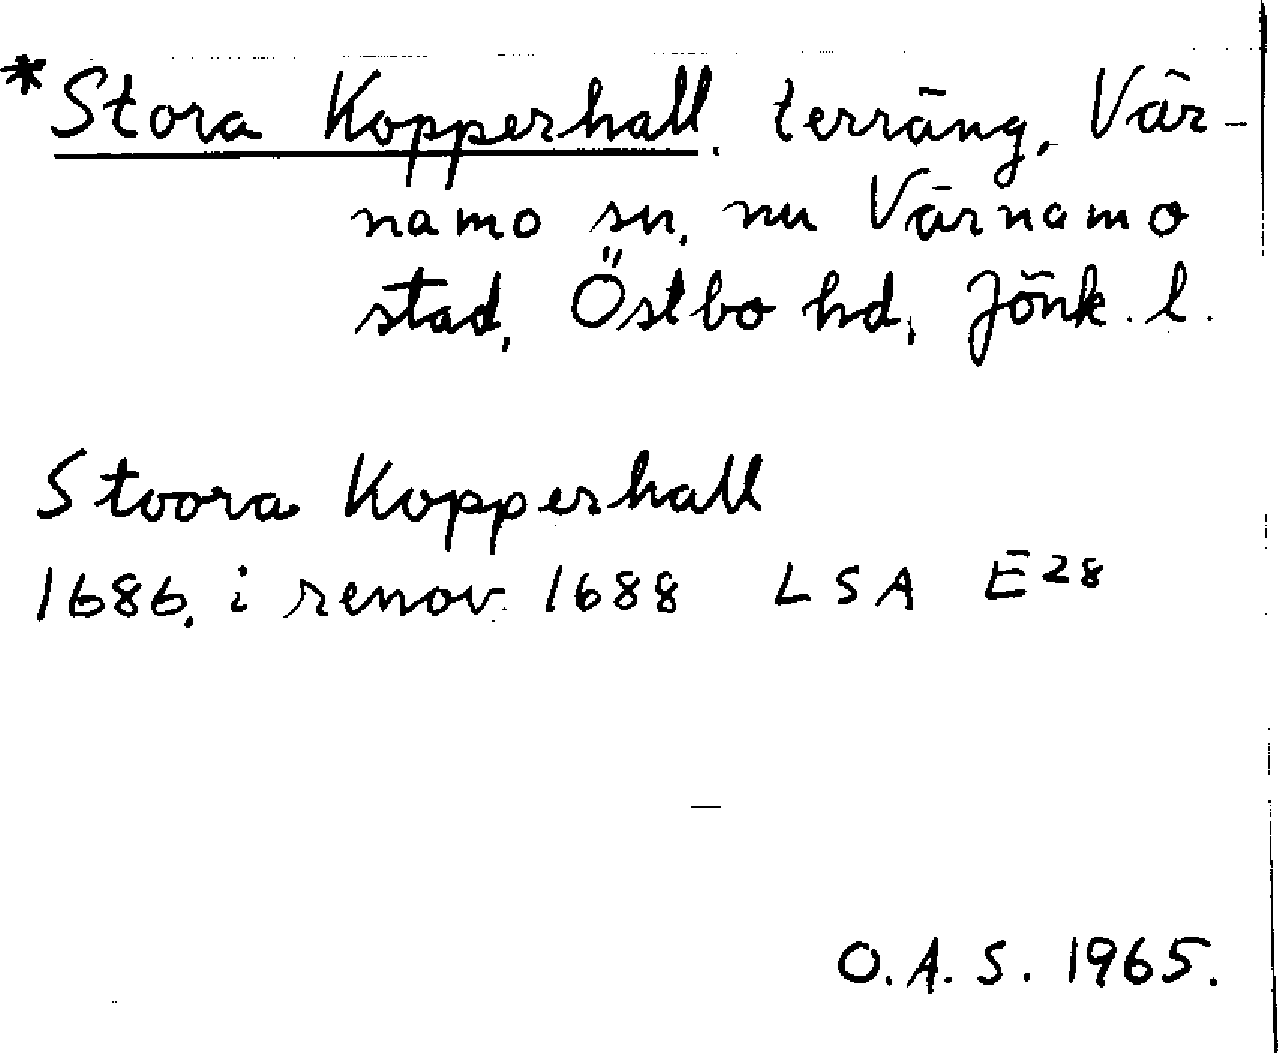 *Stora Kopperhall, terräng, Vär-
namo sn, nu Värnamo
stad, Östbo hd, Jönk. l.
Stoora Kopperhall
1686, i renov. 1688 LSA E28
O.A.S. 1965.